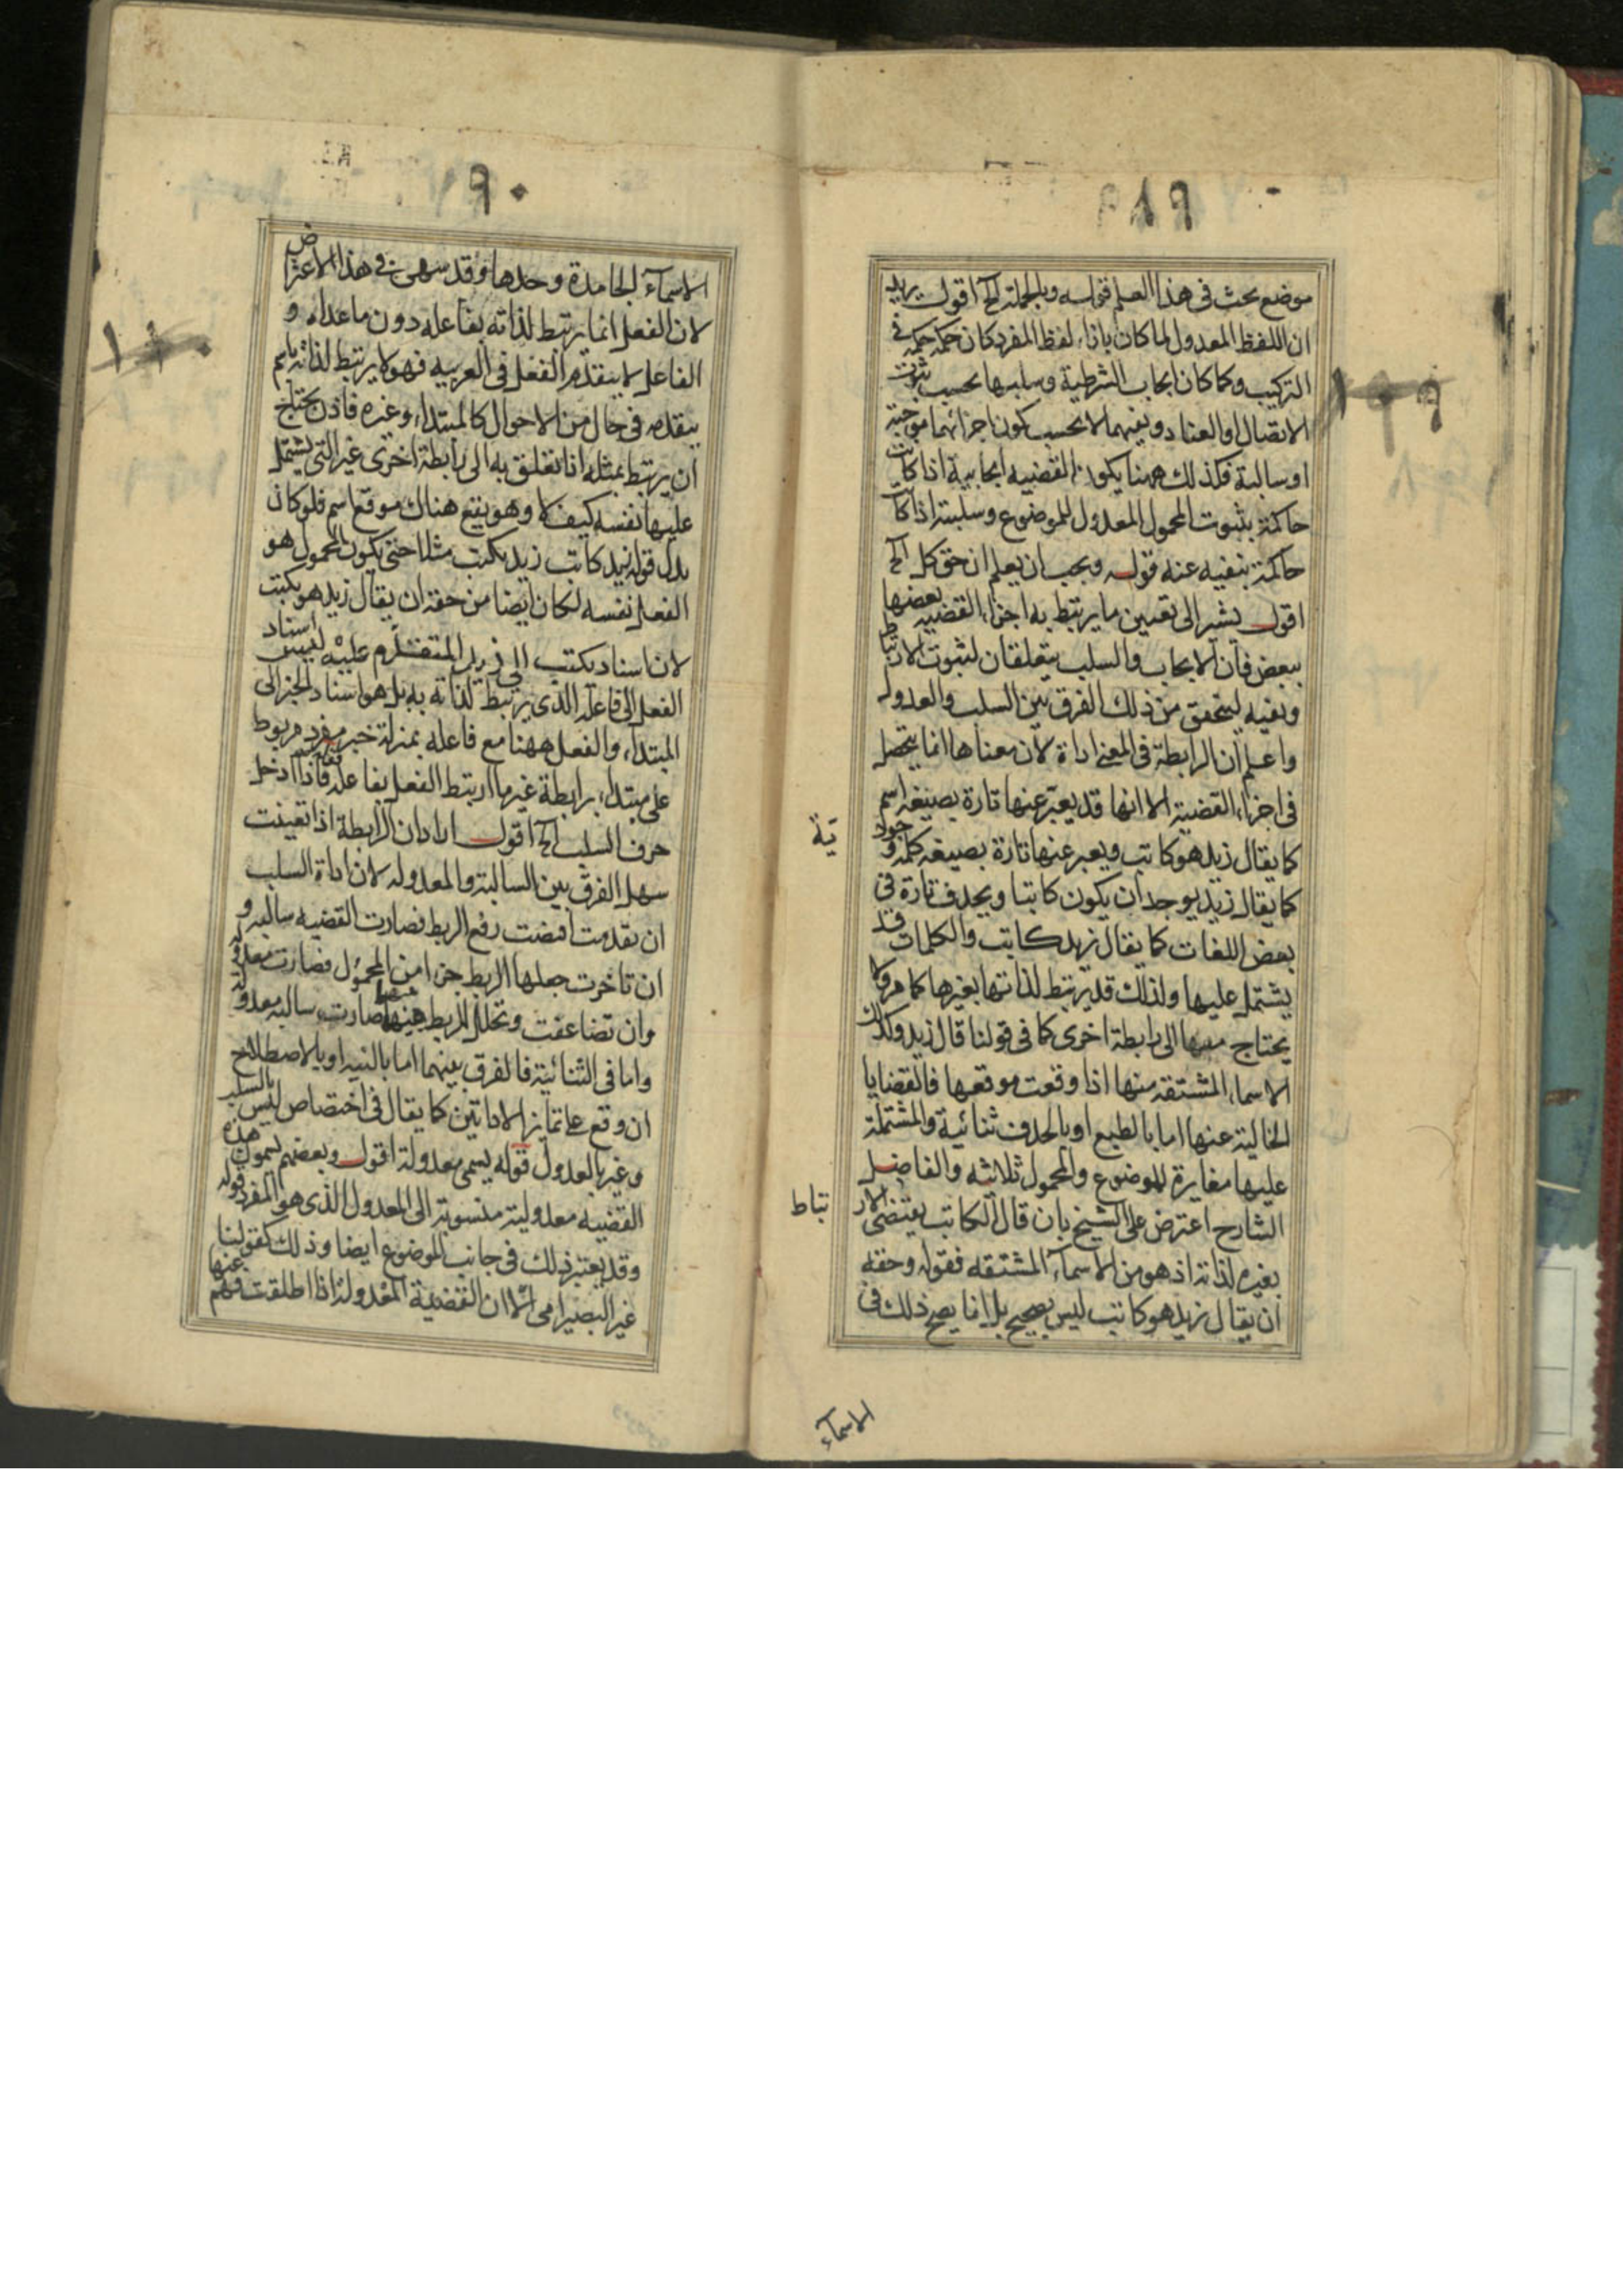 ١٨٩
موضع بحث فى هذا العلم قوله وبالجملة الخ اقول يريد
ان اللفظ المعدول لما كان بازاء لفظ المفرد كان حكمه حكمه فى
التركيب وكما كان ايجاب الشرطية وسلبها بحسب ثبوت
الاتصال او العناد ونفيهما لا بحسب كون اجزائهما موجبة
او سالبة فكذلك ههنا يكون القضيه ايجابية اذا كانت
حاكمة بثبوت المحمول المعدول للموضوع وسلبية اذا كا
حاكمة بنفيه عنه قوله ويجب ان يعلم ان حق كل الخ
اقول يشير الى تعيين ما يرتبط به اجزاء القضيه بعضها
ببعض فان الايجاب والسلب يتعلقان لثبوت الارتباط
ونفيه ليتحقق من ذلك الفرق بين السلب والعدول
واعلم ان الرابطة فى المعنى اداة لان معناها انما يتحصل
فى اجزاء القضية الا انها قد يعبر عنها تارة بصيغه اسم
كما يقال زيد هو كاتب ويعبر عنها تارة بصيغه كلمة وجود
ية
كما يقال زيد يوجد ان يكون كاتبا ويحذف تارة فى
بعض اللغات كما يقال زيد كاتب والكلمات قد
يشتمل عليها ولذلك قد يرتبط لذاتها بغيرها كما مر ولا
يحتاج معها الى رابطة اخرى كما فى قولنا قال زيد وكذلك
الاسماء المشتقه منها اذا وقعت موقعها فالقضايا
الخالية عنها اما بالطبع او بالحذف ثنائية والمشتملة
عليها مغايرة للموضوع والمحمول ثلاثيه والفاضل
الشارح اعترض على الشيخ بان قال الكاتب يقتضى الار
تباط
بغيره لذاته اذ هو من الاسماء المشتقه فقوله وحقه
ان يقال زيد هو كاتب ليس بصحيح بل انما يصح ذلك فى
الاسماء
١٩٠
الاسماء الجامدة وحدها وقد سهى فى هذا الاعتراض
لان الفعل انما يرتبط لذاته بفاعله دون ما عداه و
الفاعل لا يتقدم الفعل فى العربيه فهو لا يرتبط لذاته باسم
يتقدمه فى حال من الاحوال كالمبتداء وغيره فاذن يحتاج
ان يرتبط بمثله اذا تعلق به الى رابطة اخرى غير التى يشتمل
عليها نفسه كيف لا وهو يقع هناك موقع اسم فلو كان
بدل قوله زيد كاتب زيد يكتب مثلا حتى يكون المحمول هو
الفعل نفسه لكان ايضا من حقه ان يقال زيد هو يكتب
لان اسناد يكتب الى زيد المتقدم عليه ليس اسناد
الفعل الى فاعله الذى يرتبط لذاته به بل هو اسناد الخبر الى
المبتداء والفعل ههنا مع فاعله بمنزلة خبر مفرد مربوط
على مبتداء برابطة غير ما ارتبط الفعل بفاعله فاذا ادخل
حرف السلب الخ اقول اراد ان الرابطة اذا تعينت
سهل الفرق بين السالبة والمعدوله لان اداة السلب
ان تقدمت اقتضت رفع الربط فصارت القضيه سالبه و
ان تاخرت جعلها الربط جزءا من المحمول فصارت معدوله
وان تضاعفت وتخلل الربط بينهما صارت سالبه معدولة
واما فى الثنائية فالفرق بينهما اما بالنيه او بالاصطلاح
ان وقع على تمايز الاداتين كما يقال فى اختصاص ليس بالسلب
وغير بالعدول قوله يسمى معدولة اقول وبعضهم يسمون هذه
القضيه معدولية منسوبة الى المعدول الذى هو المفرد قوله
وقد يعتبر ذلك فى جانب الموضوع ايضا وذلك كقولنا
غير البصير امى الا ان القضية المعدولة اذا اطلقت فهم عنها